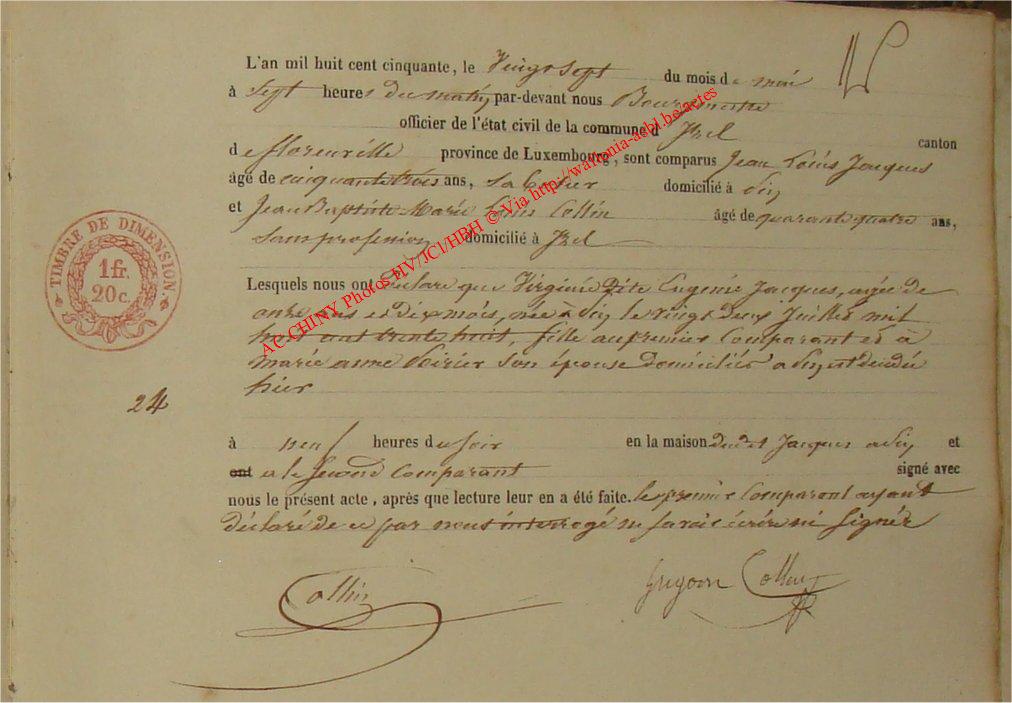 L'an mil huit cent cinquante, le Vingt sept du mois de mai
à sept heures du matin par-devant nous Bourgmestre
officier de l'état civil de la commune d' Izel canton
de florenville province de Luxembourg, sont comparus Jean Louis Jacques
âgé de cinquante trois ans, domicilié à
et Jean Baptiste Marie Louis Collin âgé de quarante quatre ans,
sans profession domicilié à Izel
Lesquels nous ont declaré que Virginie Dite Eugénie Jacques, agée de
onze ans et dix mois, née à le vingt deux Juillet mil
huit cent trente huit, fille au premier comparant et à
marie anne Poirier son épouse domiciliés a est décédé
hier
à neuf heures du soir en la maison dudit Jacques a et
ont et le second comparant signé avec
nous le présent acte, après que lecture leur en a été faite. le premier comparant ayant
déclaré de ce par nous interrogé ne savoir écrire ni signér
Collin
Collin
24
TIMBRE DE DIMENSION
1 fr.
20 c.
AC CHINY Photos HV/JCl/HBH © Via http://wallonia-asbl.be-actes